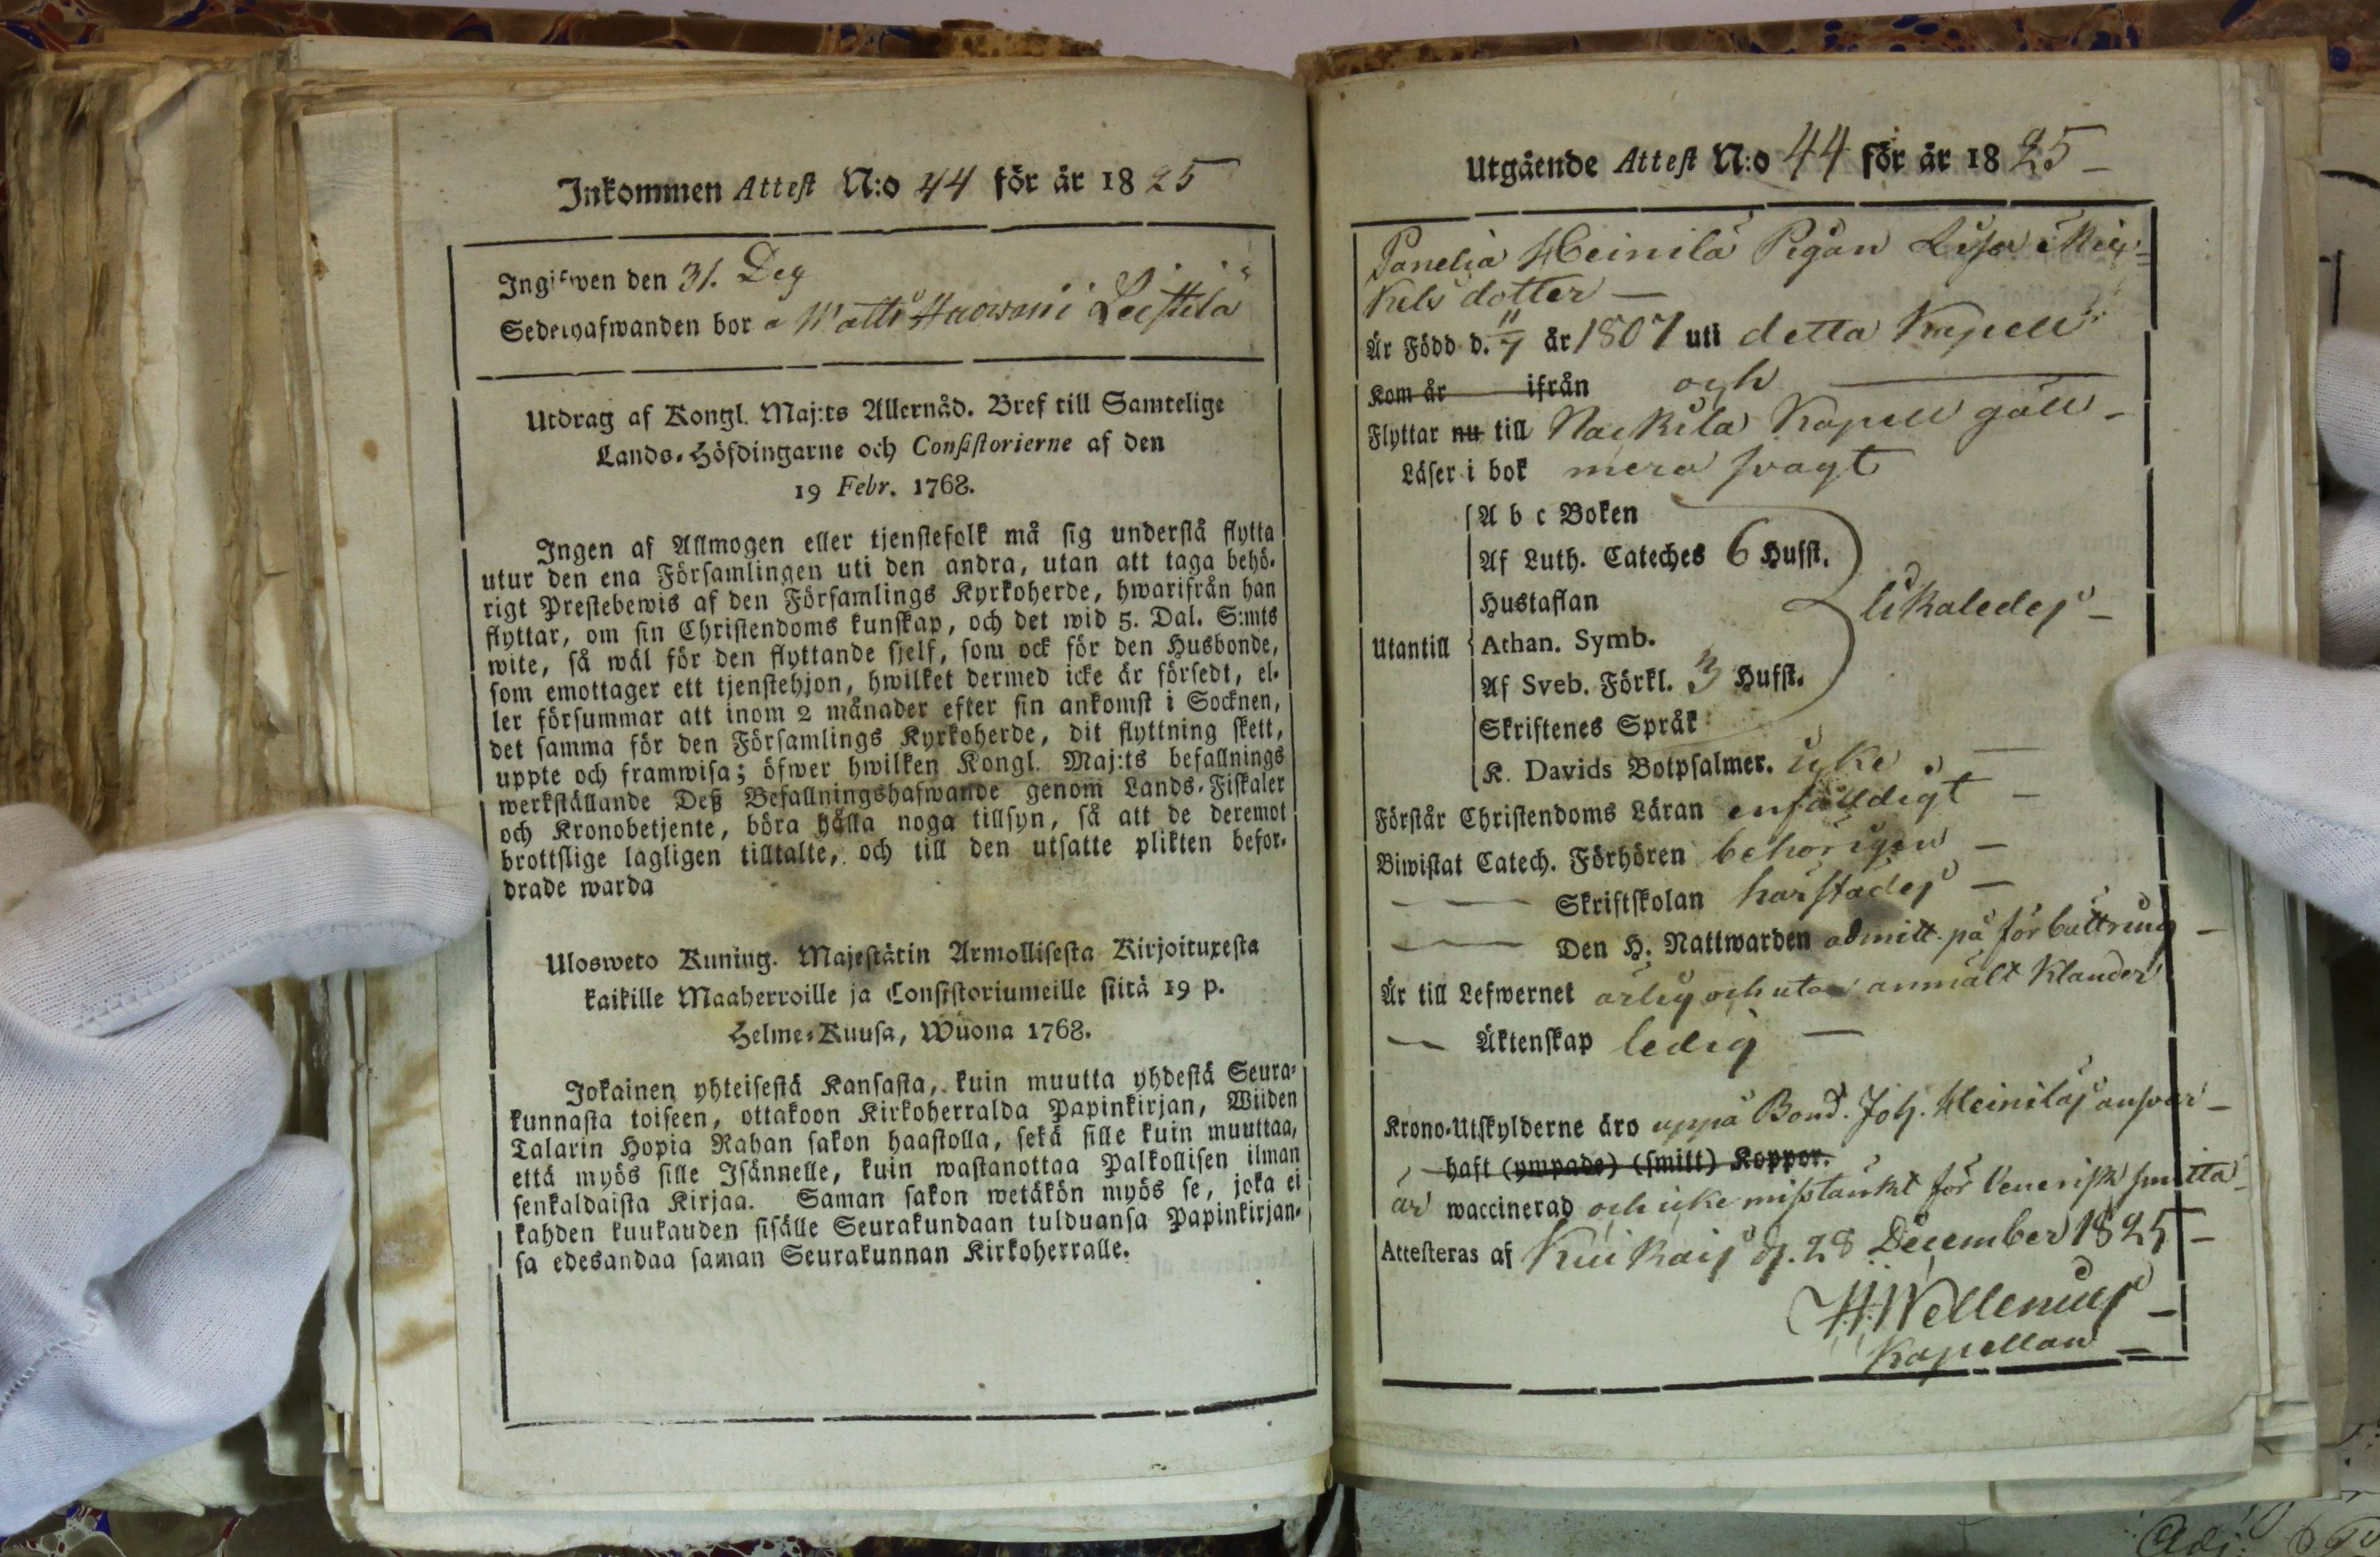 Inkommen Attest N:o 44 för år 1825
Ingifwen den 31. Dec
Sedelhafwanden bor a Leistilä
Utdrag af Kongl. Maj:ts Allernåd. Bref till Samtelige
Lands-Höfdingarne och Consistorierne af den
19 Febr. 1768.
Ingen af Allmogen eller tjenstefolk må sig understå flytta
utur den ena Församlingen uti den andra, utan att taga behö-
rigt Prestebewis af den Församlings Kyrkoherde, hwarifrån han
flyttar, om sin Christendoms kunskap, och det wid 5. Dal. S:mts
wite, så wäl för den flyttande sjelf, som ock för den Husbonde,
som emottager ett tjenstehjon, hwilket dermed icke är försedt, el-
ler försummar att inom 2 månader efter sin ankomst i Socknen,
det samma för den Församlings Kyrkoherde, dit flyttning skett,
uppte och framwisa; öfwer hwilken Kongl. Maj:ts befallnings
werkställande Deß Befallningshafwande genom Lands-Fiskaler
och Kronobetjente, böra hålla noga tillsyn, så att de deremot
brottslige lagligen tilltalte, och till den utsatte plikten befor-
drade warda
Ulosweto Kuning. Majestätin Armollisesta Kirjoituxesta
kaikille Maaherroille ja Consistoriumeille siitä 19 p.
Helme-Kuusa, Wuona 1768.
Jokainen yhteisestä Kansasta, kuin muutta yhdestä Seura-
kunnasta toiseen, ottakoon Kirkoherralda Papinkirjan, Wiiden
Talarin Hopia Rahan sakon haastolla, sekä sille kuin muuttaa,
että myös sille Isännelle, kuin wastanottaa Palkollisen ilman
senkaldaista Kirjaa. Saman sakon wetäkön myös se, joka ei
kahden kuukauden sisälle Seurakundaan tulduansa Papinkirjan-
sa edesandaa saman Seurakunnan Kirkoherralle.
Utgående Attest N:o 44 för år 1825
Panelia Heinilä Pigan Lisa
dotter
Är Född d. 11/7 år 1807 uti detta Kapell
Kom år ifrån och
Flyttar nu till Nackila Kapell gäll
Läser i bok mera svagt
A b c Boken
Af Luth. Cateches 6 Hufst.
Hustaflan
likaledes
Utantill Athan. Symb.
Af Sveb. Förkl. 3 Hufst.
Skriftenes Språk
K. Davids Botpsalmer. icke
Förstår Christendoms Läran enfalldigt
Biwistat Catech. Förhören behörigen
Skriftskolan härstädes
Den H. Nattwarden admitt. på förbättring
Är till Lefwernet ärlig och utan anmält klander
Äktenskap ledig
Krono-Utskylderne äro uppå Bond. Joh. Heiniläs answar
haft (ympade) (smitt) Koppor.
är waccinerad och icke mißtänkt för Venerisk smitta
Attesteras af Kiukais d. 28 December 1825
H. Wellenius
Kapellan